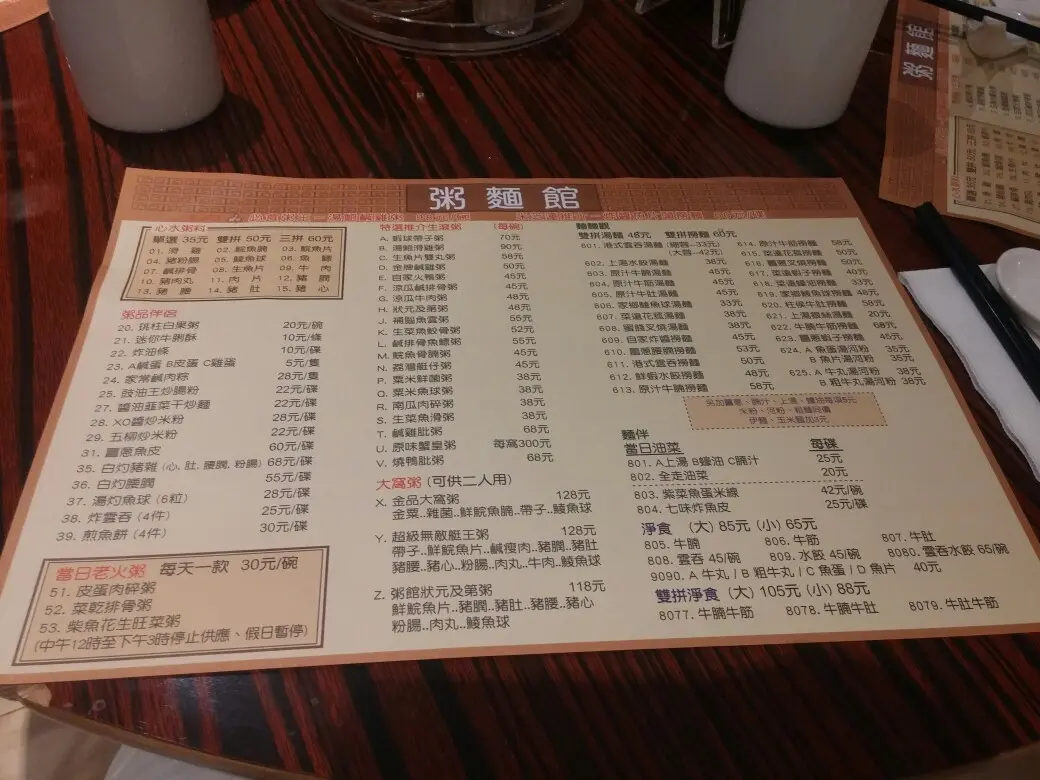 粥麵館
心水粥料
單選 35元 雙拼 50元 三拼 60元
01. 滑雞 02. 鯇魚腩 03. 鯇魚片
04. 豬粉腸 05. 鯪魚球 06. 魚鰾
07. 鹹排骨 08. 生魚片 09. 牛肉
10. 豬肉丸 11. 肉片 12. 豬膶
13. 豬腰 14. 豬肚 15. 豬心
粥品伴侶
20. 珧柱白果粥 20元/碗
21. 迷你牛脷酥 10元/條
22. 炸油條 10元/碟
23. A鹹蛋 B皮蛋 C雞蛋 5元/隻
24. 家常鹹肉粽 28元/隻
25. 豉油王炒腸粉 22元/碟
27. 醬油韮菜干炒麵 22元/碟
28. XO醬炒米粉 28元/碟
29. 五柳炒米粉 22元/碟
31. 薑蔥魚皮 60元/碟
35. 白灼豬雜 (心、肚、腰膶、粉腸) 68元/碟
36. 白灼腰膶 55元/碟
37. 湯灼魚球 (6粒) 28元/碟
38. 炸雲吞 (4件) 25元/碟
39. 煎魚餅 (4件) 30元/碟
當日老火粥 每天一款 30元/碗
51. 皮蛋肉碎粥
52. 菜乾排骨粥
53. 柴魚花生旺菜粥
(中午12時至下午3時停止供應、假日暫停)
特選推介生滾粥 (每碗)
A. 蝦球帶子粥 70元
B. 湯鮑滑雞粥 90元
C. 生魚片雙丸粥 58元
D. 金牌鹹雞粥 50元
E. 自家火鴨粥 45元
F. 涼瓜鹹排骨粥 45元
G. 涼瓜牛肉粥 48元
H. 狀元及第粥 46元
J. 補腦魚雲粥 55元
K. 生菜魚餃骨粥 52元
L. 鹹排骨魚鰾粥 55元
M. 鯇魚骨腩粥 45元
N. 荔灣艇仔粥 45元
P. 粟米鮮菌粥 38元
Q. 粟米魚球粥 38元
R. 南瓜肉碎粥 38元
S. 生菜魚滑粥 38元
T. 鹹雞肶粥 68元
U. 原味蟹皇粥 每窩300元
V. 燒鴨肶粥 68元
大窩粥 (可供二人用)
X. 金品大窩粥 128元
金粟..雜菌..鮮鯇魚腩..帶子..鯪魚球
Y. 超級無敵艇王粥 128元
帶子..鮮鯇魚片..鹹瘦肉..豬膶..豬肚
豬腰..豬心..粉腸..肉丸..牛肉..鯪魚球
Z. 粥館狀元及第粥 118元
鮮鯇魚片..豬膶..豬肚..豬腰..豬心
粉腸..肉丸..鯪魚球
雙拼湯麵 48元 雙拼撈麵 60元
601. 港式雲吞湯麵 (細蓉--33元)
(大蓉--42元)
602. 上湯水餃湯麵 38元
603. 原汁牛腩湯麵 45元
604. 原汁牛筋湯麵 45元
605. 原汁牛肚湯麵 45元
606. 家鄉鯪魚球湯麵 33元
607. 菜遠花菰湯麵 38元
608. 蜜餞叉燒湯麵 38元
609. 自家炸醬撈麵 45元
610. 薑蔥腰膶撈麵 53元
611. 港式雲吞撈麵 50元
612. 鮮蝦水餃撈麵 48元
613. 原汁牛腩撈麵 58元
614. 原汁牛筋撈麵 58元
615. 菜遠花菰撈麵 50元
616. 薑蔥叉燒撈麵 50元
617. 菜遠蝦子撈麵 40元
618. 菜遠蠔油撈麵 33元
619. 家鄉鯪魚球撈麵 45元
620. 柱侯牛肚撈麵 58元
622. 牛腩牛筋撈麵 68元
623. 薑蔥蝦子撈麵 45元
624. A 魚蛋湯河粉 35元
B 魚片湯河粉 35元
625. A 牛丸湯河粉 38元
B 粗牛丸湯河粉 38元
米粉、河粉、粗麵同價
伊麵、玉米麵加3元
麵伴
當日油菜 每碟
801. A上湯 B蠔油 C腩汁 25元
802. 全走油菜 20元
803. 紫菜魚蛋米線 42元/碗
804. 七味炸魚皮 25元/碟
淨食 (大) 85元 (小) 65元
805. 牛腩 806. 牛筋 807. 牛肚
808. 雲吞 45/碗 809. 水餃 45/碗 8080. 雲吞水餃 65/碗
9090. A 牛丸 / B 粗牛丸 / C 魚蛋 / D 魚片 40元
雙拼淨食 (大) 105元 (小) 88元
8077. 牛腩牛筋 8078. 牛腩牛肚 8079. 牛肚牛筋
粥麵館